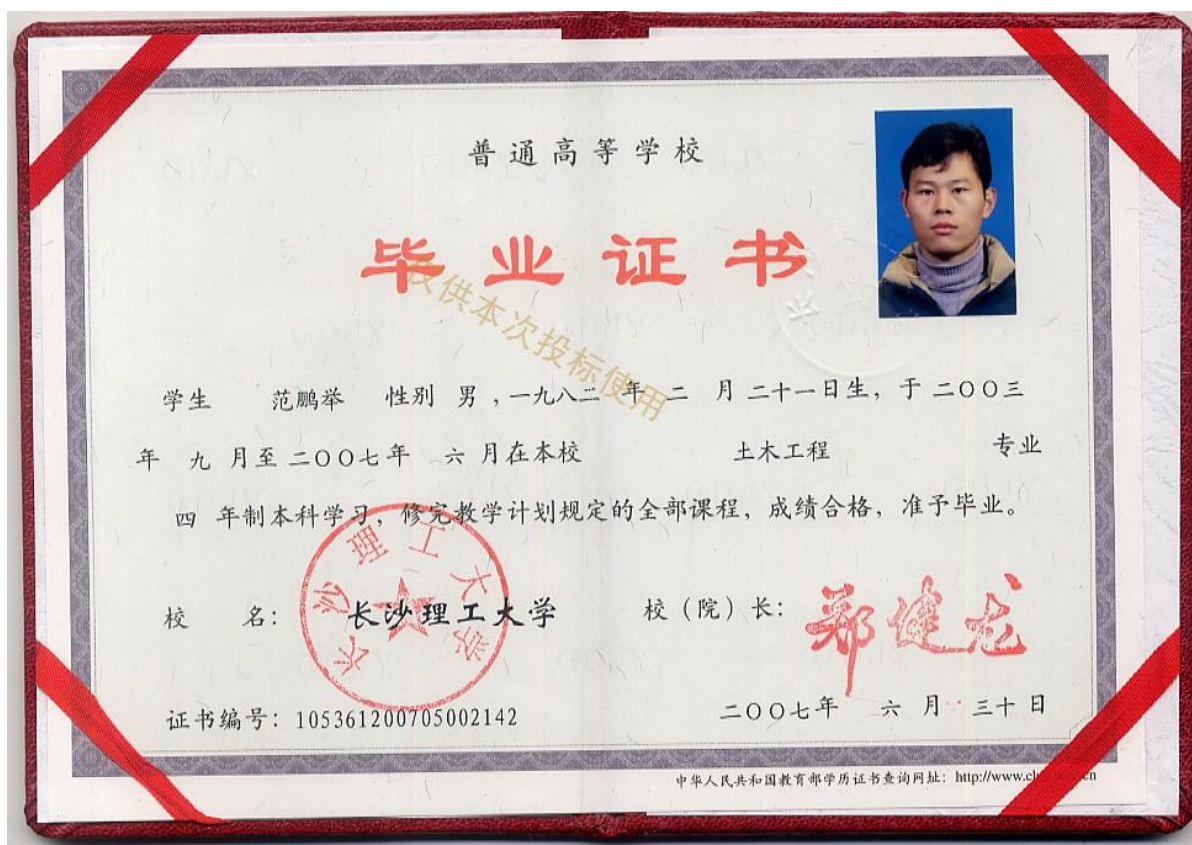 普通高等学校
毕业证书
仅供本次投标使用
学生 范鹏举 性别 男 ,一九八二 年 二 月 二十一日生, 于 二〇〇三
年 九 月至 二〇〇七年 六 月在本校 土木工程 专业
四 年制本科学习, 修完教学计划规定的全部课程, 成绩合格, 准予毕业。
长沙理工大学
校 名: 长沙理工大学 校(院)长: 郑健龙
证书编号: 105361200705002142 二〇〇七年 六 月 三十 日
中华人民共和国教育部学历证书查询网址: http://www.